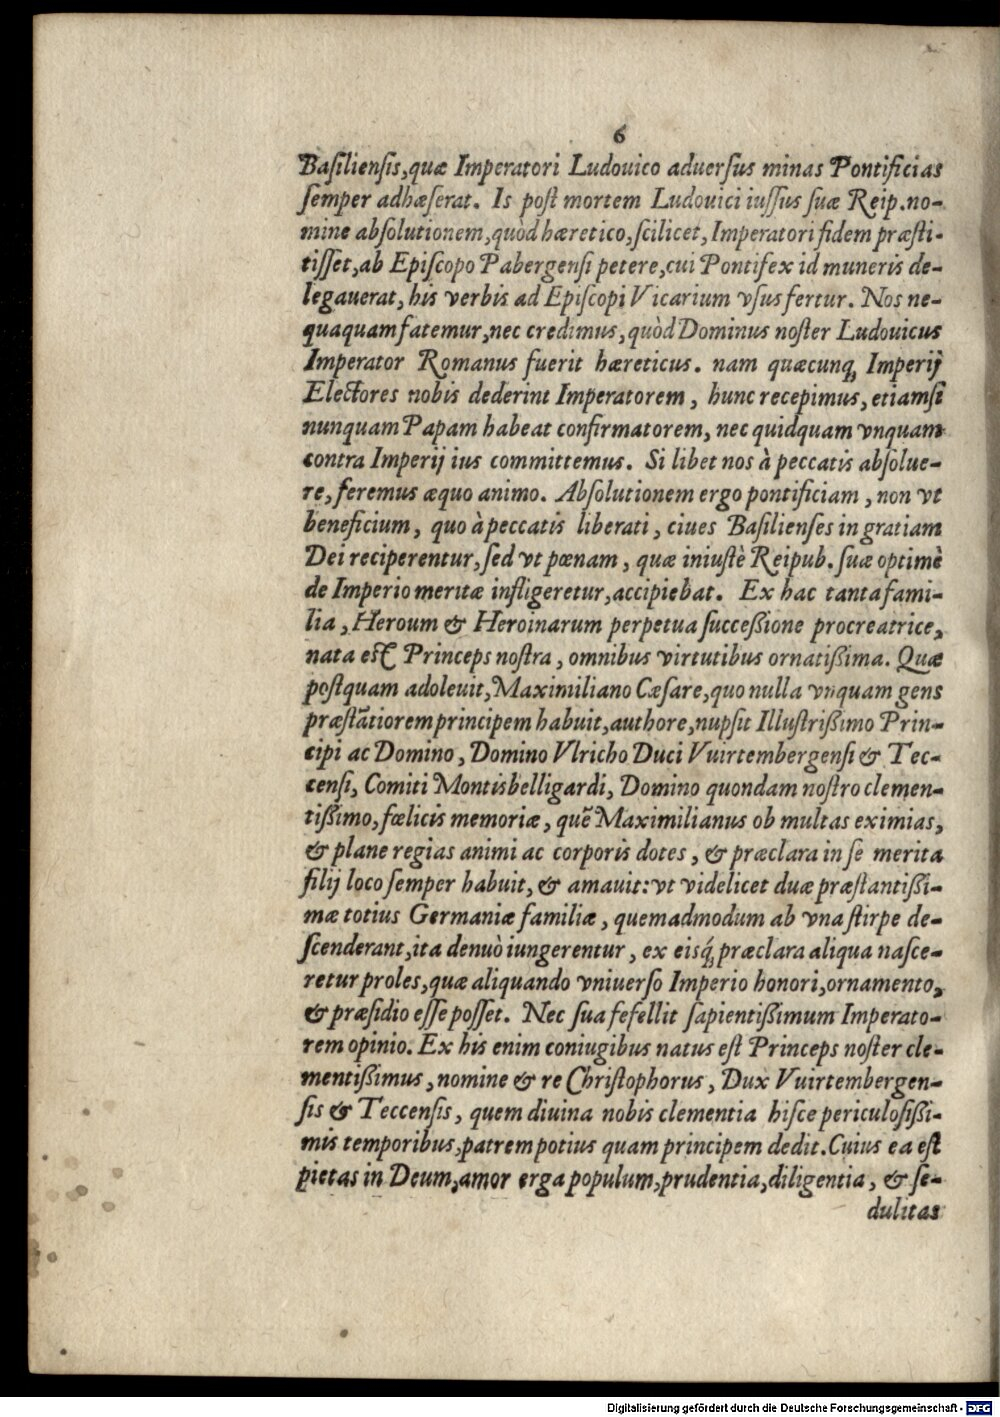 6
Basiliensis, quæ Imperatori Ludouico aduersus minas Pontificias
semper adhæserat. Is post mortem Ludouici iussus suæ Reip. no-
mine absolutionem, quòd hæretico, scilicet, Imperatori fidem præsti-
tisset, ab Episcopo Pabergensi petere, cui Pontifex id muneris de-
legauerat, his verbis ad Episcopi Vicarium vsus fertur. Nos ne-
quaquam fatemur, nec credimus, quòd Dominus noster Ludouicus
Imperator Romanus fuerit hæreticus. nam quæcunq; Imperij
Electores nobis dederint Imperatorem, hunc recepimus, etiamsi
nunquam Papam habeat confirmatorem, nec quidquam vnquam
contra Imperij ius committemus. Si libet nos à peccatis absolue-
re, feremus æquo animo. Absolutionem ergo pontificiam, non vt
beneficium, quo à peccatis liberati, ciues Basilienses in gratiam
Dei reciperentur, sed vt pœnam, quæ iniustè Reipub. suæ optimè
de Imperio meritæ infligeretur, accipiebat. Ex hac tanta fami-
lia, Heroum & Heroinarum perpetua successione procreatrice,
nata est Princeps nostra, omnibus virtutibus ornatissima. Quæ
postquam adoleuit, Maximiliano Cæsare, quo nulla vnquam gens
præstãtiorem principem habuit, authore, nupsit Illustrissimo Prin-
cipi ac Domino, Domino Vlricho Duci Vuirtembergensi & Tec-
censi, Comiti Montisbelligardi, Domino quondam nostro clemen-
tissimo, fœlicis memoriæ, quẽ Maximilianus ob multas eximias,
& plane regias animi ac corporis dotes, & præclara in se merita
filij loco semper habuit, & amauit: vt videlicet duæ præstantissi-
mæ totius Germaniæ familiæ, quemadmodum ab vna stirpe de-
scenderant, ita denuò iungerentur, ex eisq́; præclara aliqua nasce-
retur proles, quæ aliquando vniuerso Imperio honori, ornamento,
& præsidio esse posset. Nec sua fefellit sapientissimum Imperato-
rem opinio. Ex his enim coniugibus natus est Princeps noster cle-
mentissimus, nomine & re Christophorus, Dux Vuirtembergen-
sis & Teccensis, quem diuina nobis clementia hisce periculosissi-
mis temporibus, patrem potius quam principem dedit. Cuius ea est
pietas in Deum, amor erga populum, prudentia, diligentia, & se-
dulitas
Digitalisierung gefördert durch die Deutsche Forschungsgemeinschaft - DFG